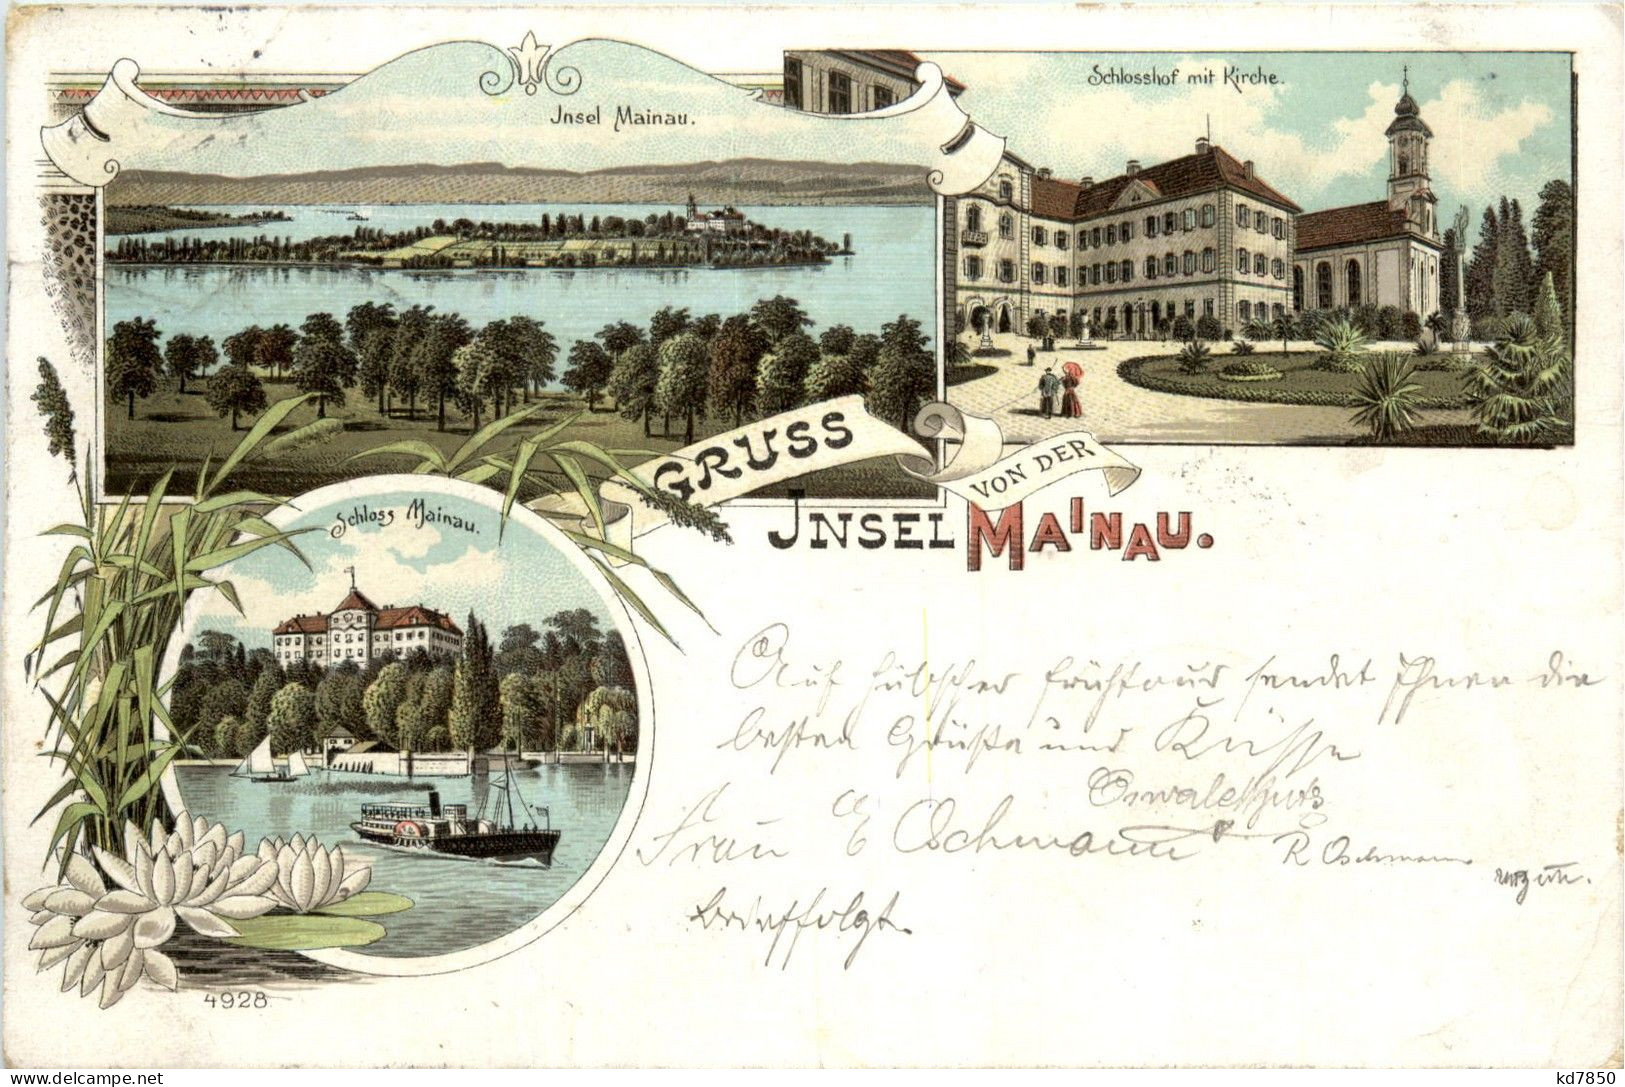 Jnsel Mainau.
Schlosshof mit Kirche.
GRUSS
VON DER
JNSEL MAINAU.
Schloss Mainau.
Auf hübscher Frühtour sendet Ihnen die
besten Grüße und Küsse
Frau E Oschmann
R Oschmann
Brief folgt.
4928
kd7850